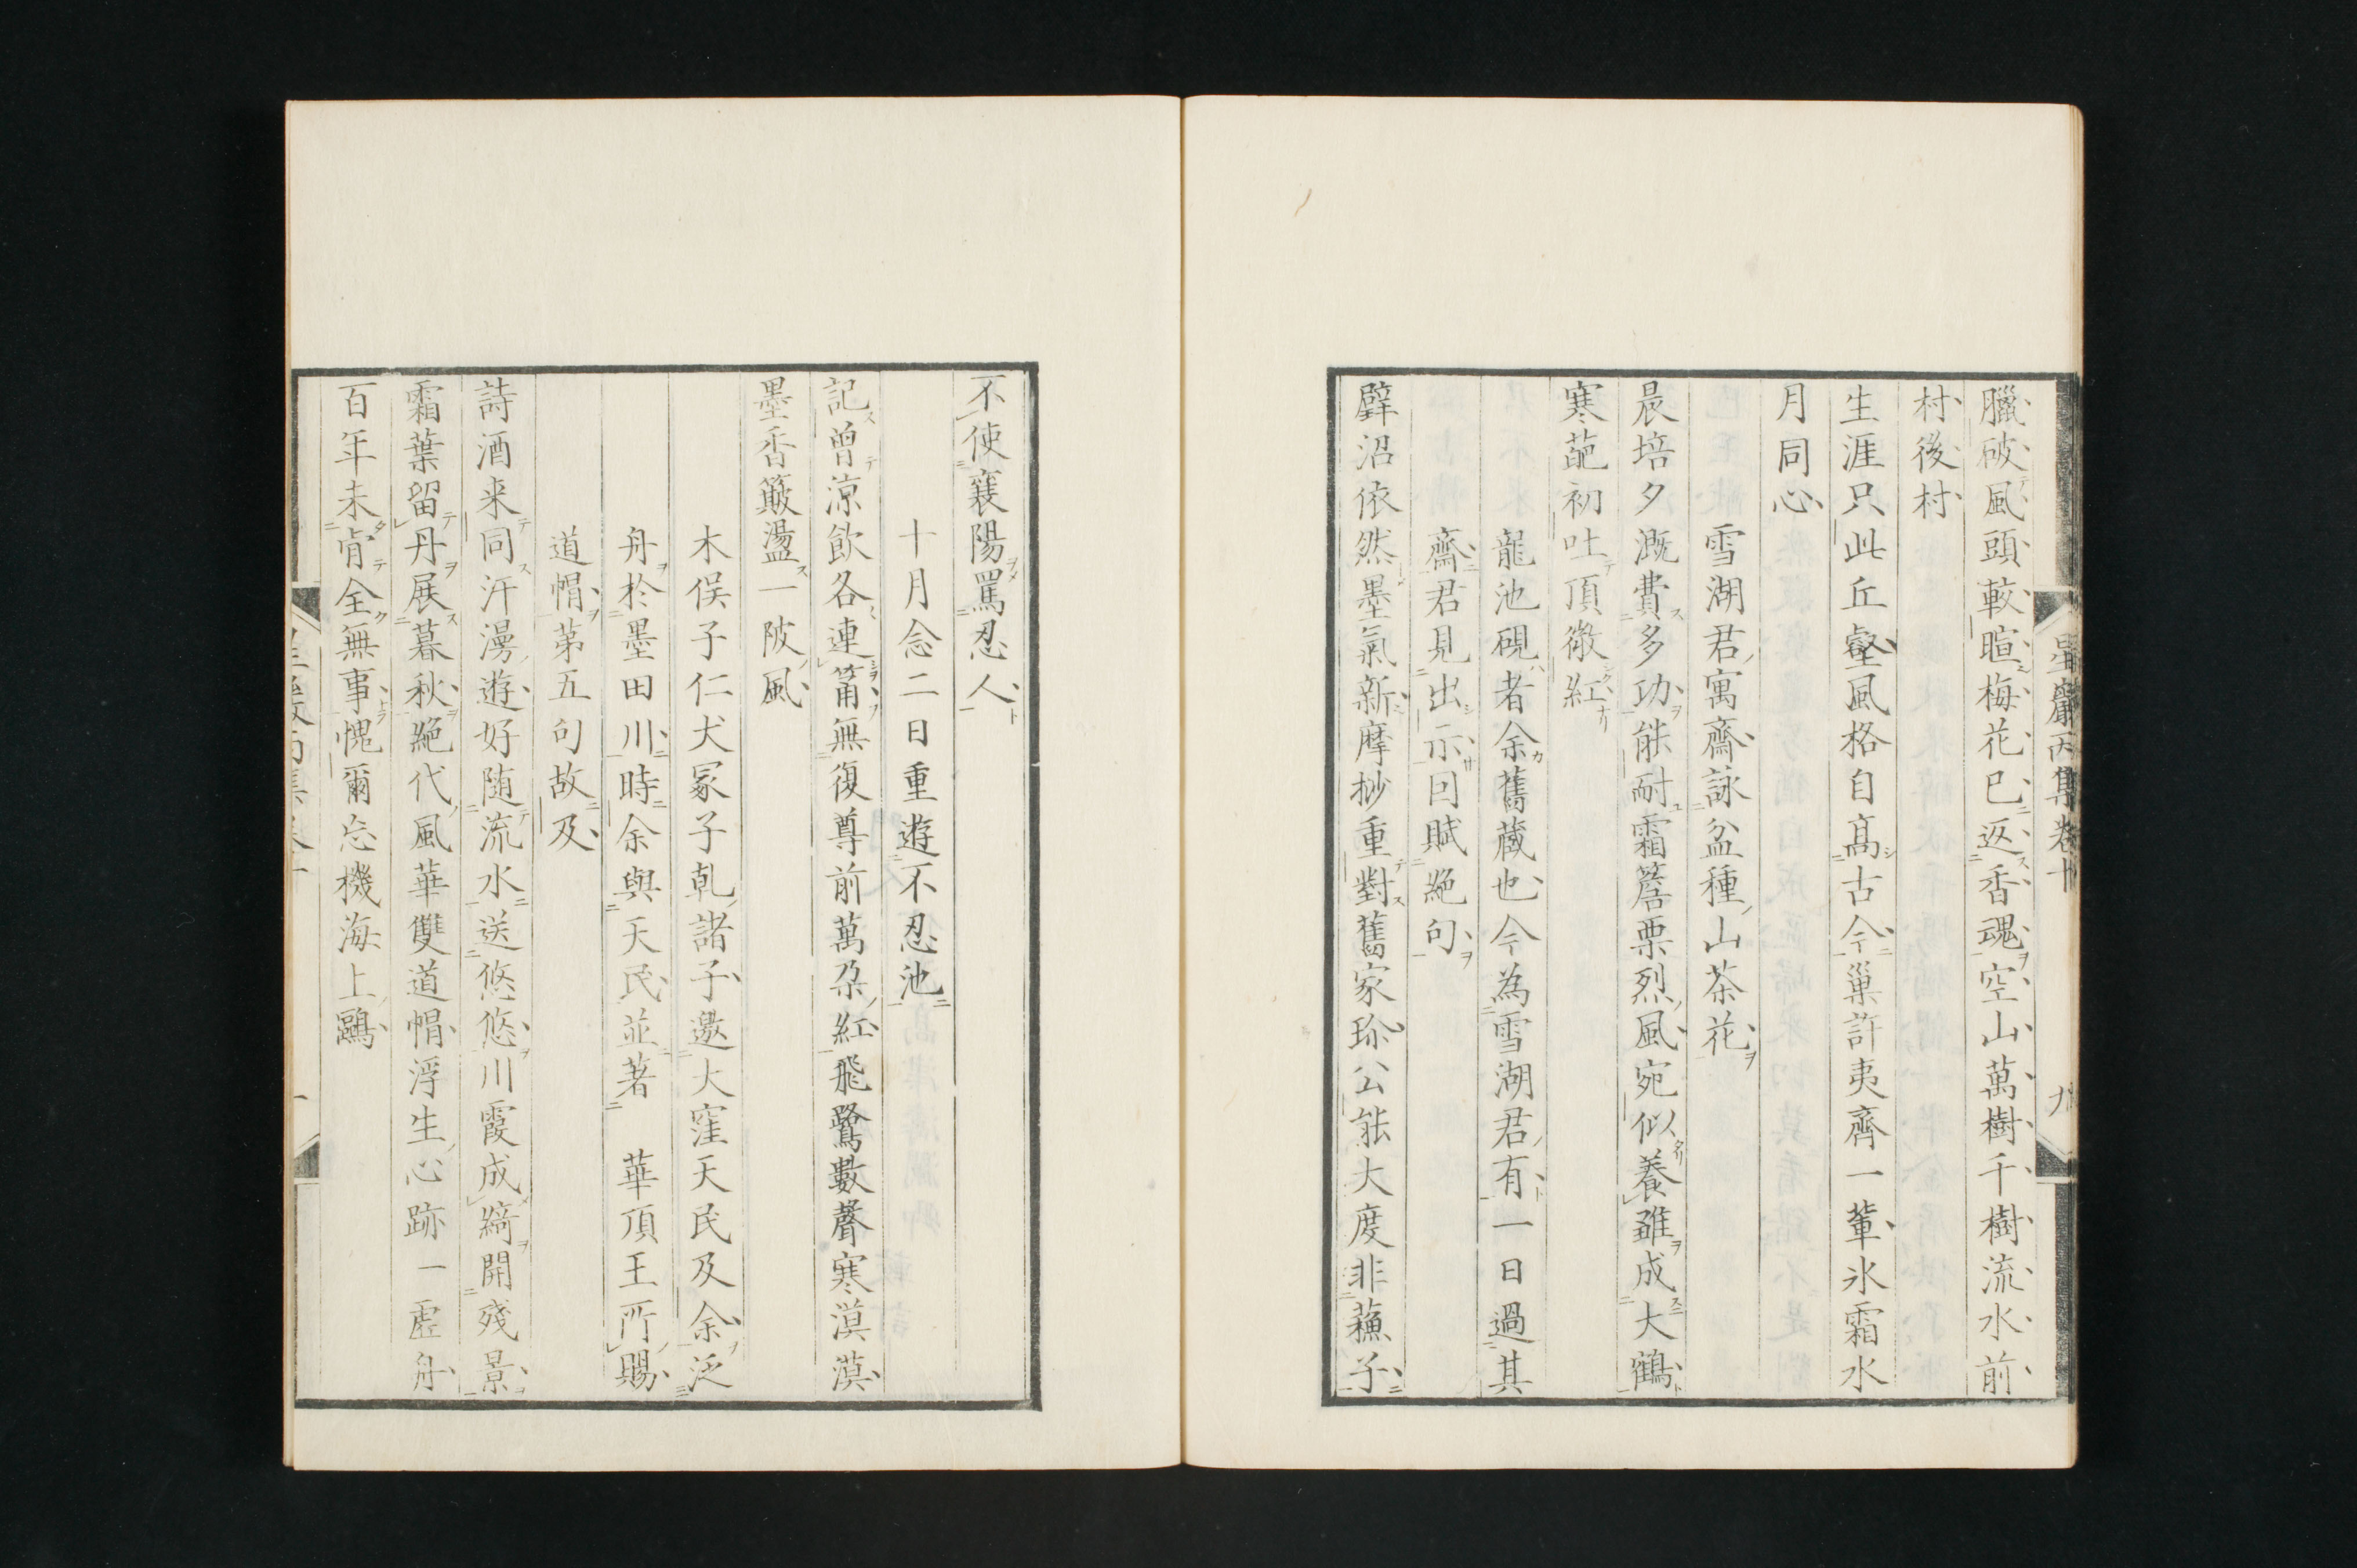 臘破風頭較暄梅花已返香魂空山萬樹千樹流水前
村後村
生涯只此丘壑風格自高古今巢許夷齊一輩氷霜水
月同心
雪湖君寓齋詠盆種山茶花
晨培夕溉費多功能耐霜簷栗烈風宛似養雛成大鶴
寒葩初吐頂微紅
龍池硯者余舊藏也今為雪湖君有一日過其
齋君見出示因賦絶句
辟沼依然墨氣新摩挱重對舊家珍公能大度非蘓子
不使襄陽罵忍人
十月念二日重遊不忍池
記曾涼飲各連筩無復尊前萬朶紅飛鷺數聲寒漠漠
墨香簸盪一陂風
木俣子仁犬冢子乹諸子邀大窪天民及余泛
舟於墨田川時余與天民並著 華頂王所賜
道帽第五句故及
詩酒来同汗漫遊好随流水送悠悠川霞成綺開殘景
霜葉留丹展暮秋絶代風華雙道帽浮生心跡一虛舟
百年未肯全無事愧爾忘機海上鷗